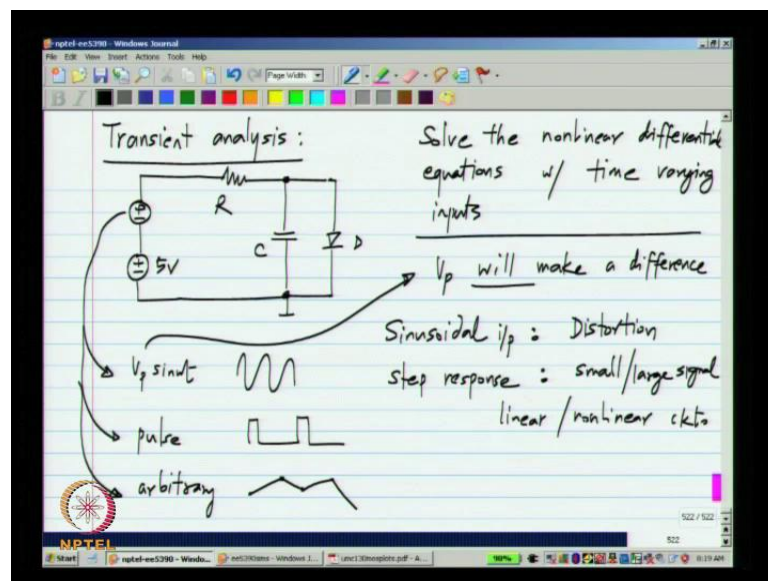 nptel-ee5390 - Windows Journal
File Edit View Insert Actions Tools Help
Page Width
B I
Transient analysis :
R
C
D
5V
Vp sinωt
pulse
arbitrary
Solve the nonlinear differential
equations w/ time varying
inputs
Vp will make a difference
Sinusoidal i/p : Distortion
Step response : small/large signal
linear/nonlinear ckts
NPTEL
522 / 522
522
Start
nptel-ee5390 - Windo...
Windows J...
umc130mosplots.pdf - A...
98%
8:19 AM